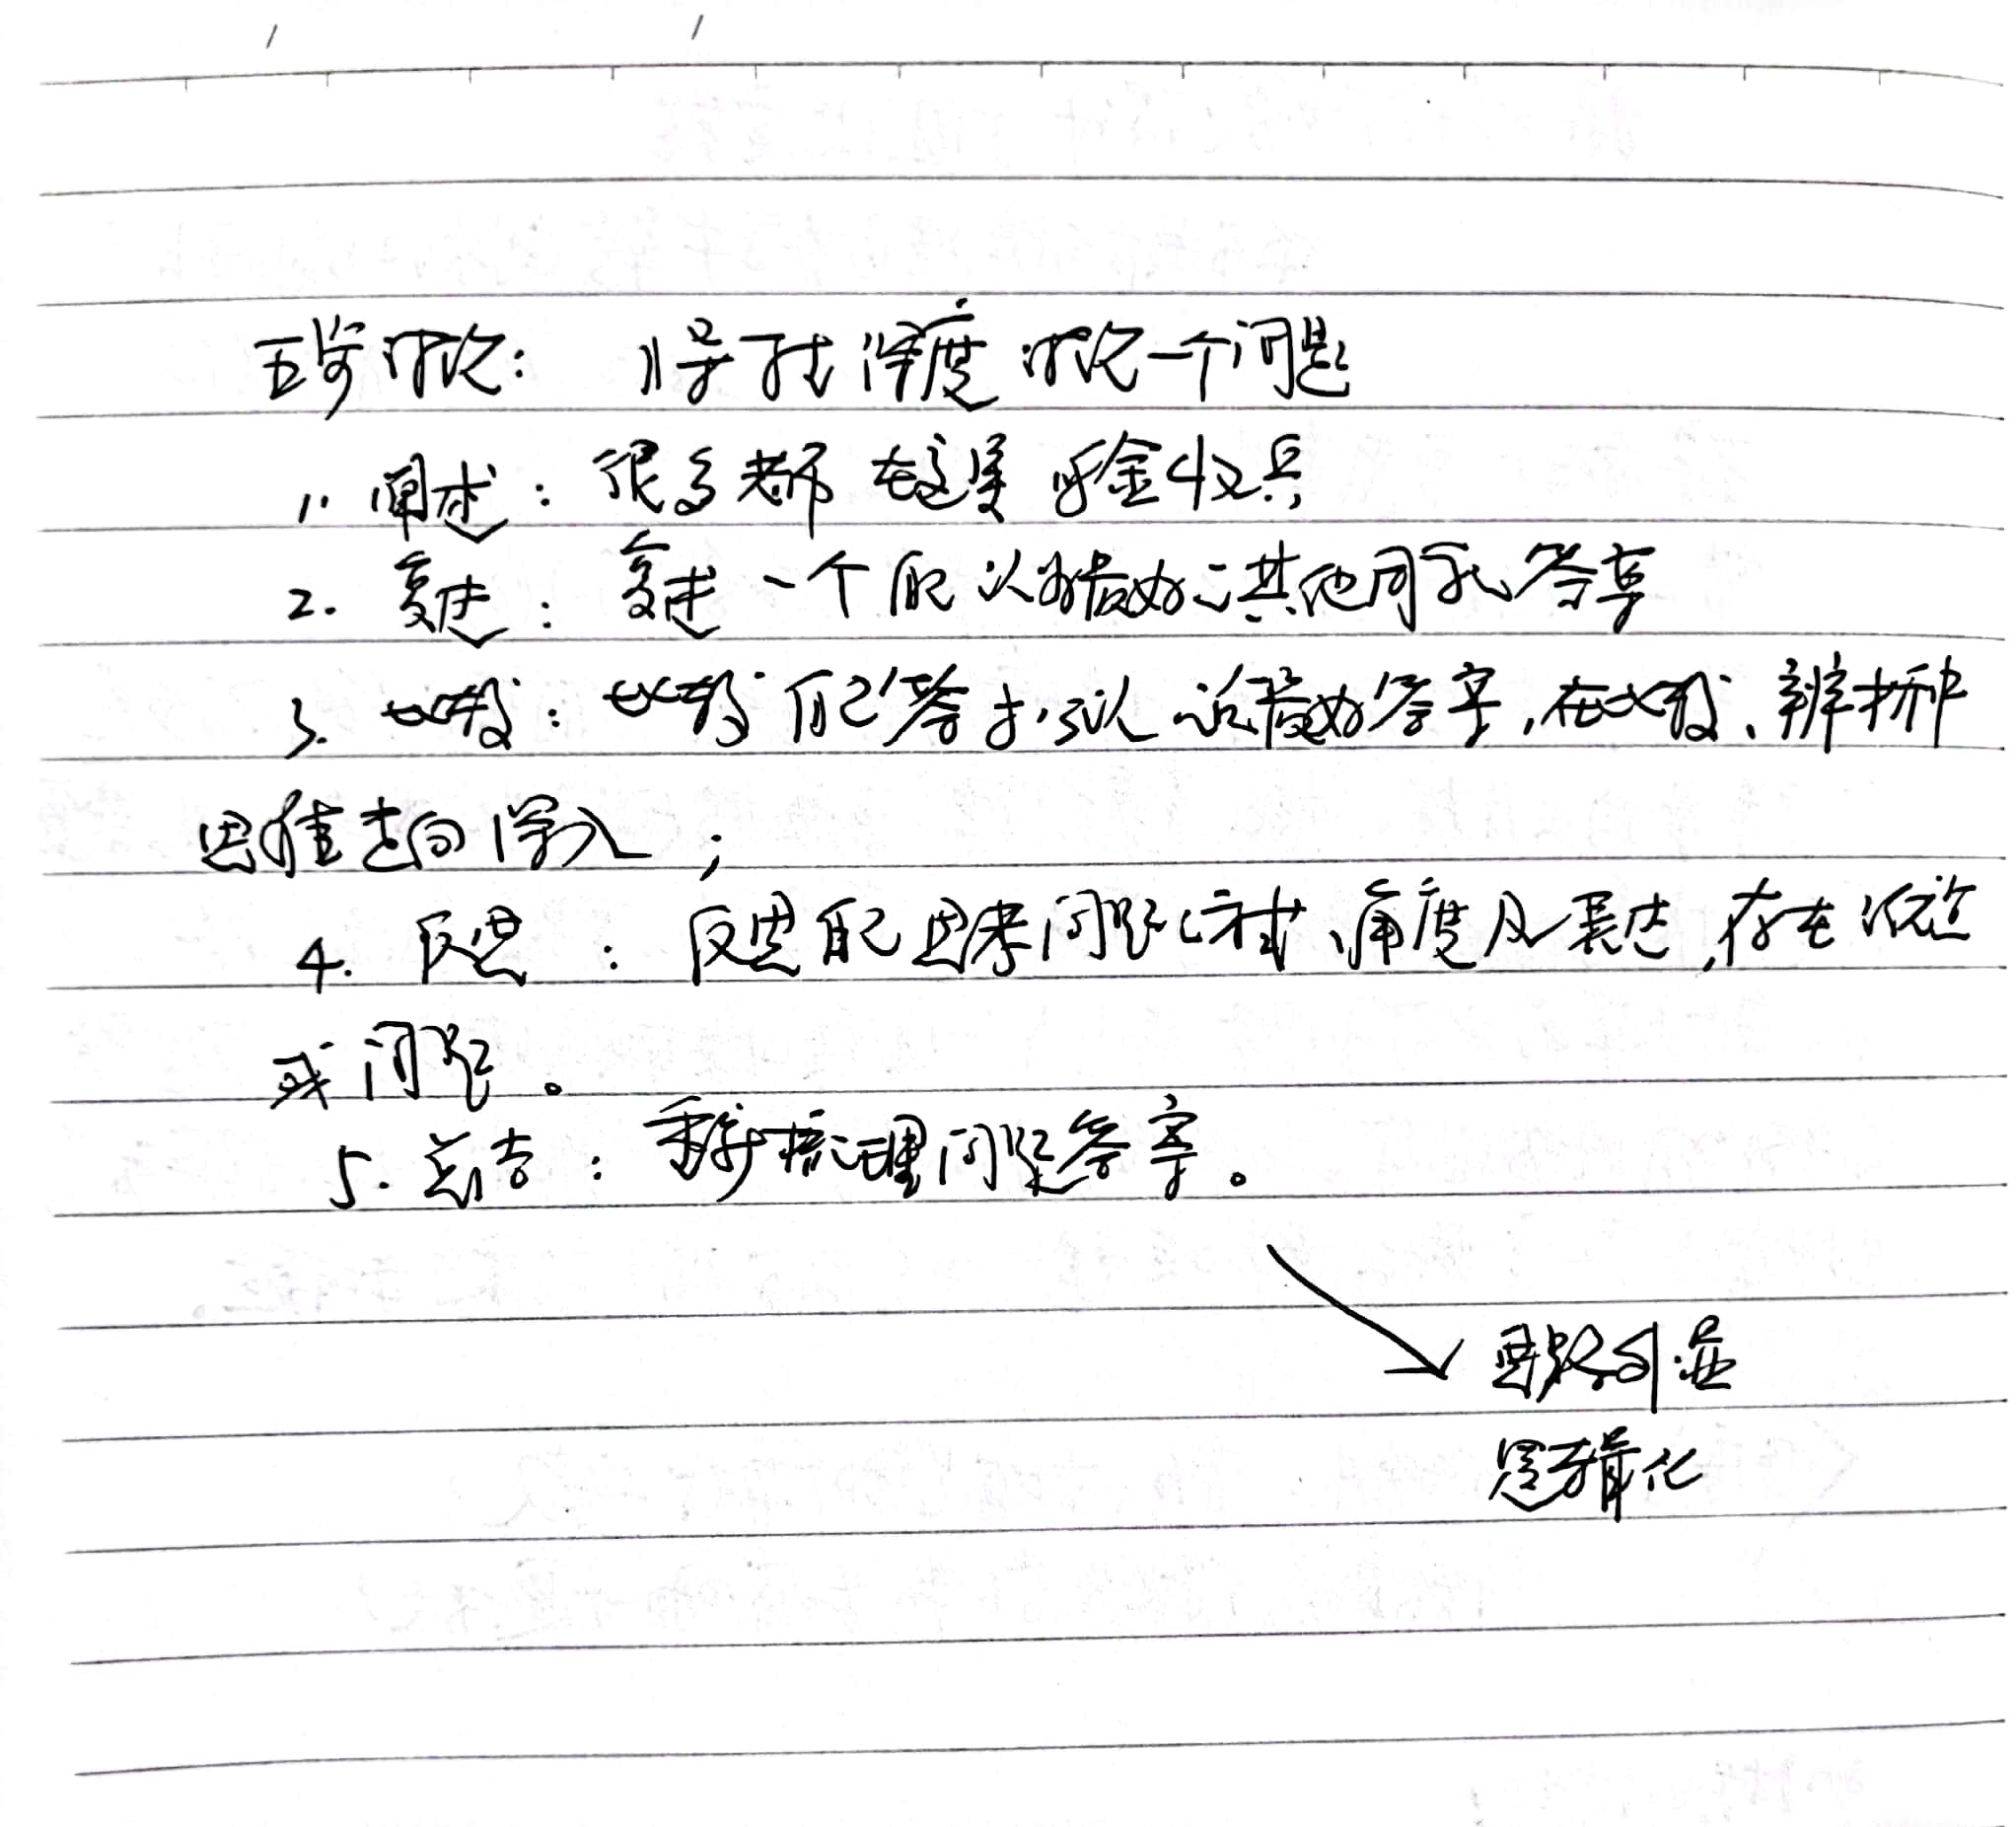 五步讨论: 将于深度讨论一个问题
1. 阐述: 很多老师在这里鸣金收兵
2. 复述: 复述一个自己认为最好的其他同学答案
3. 比较: 比较自己答案与认为最好答案,在比较、辨析中
思维走向深入;
4. 反思: 反思自己思考问题的方式、角度及表达,存在优点
或问题。
5. 总结: 重新梳理问题答案。
思路外显
逻辑化